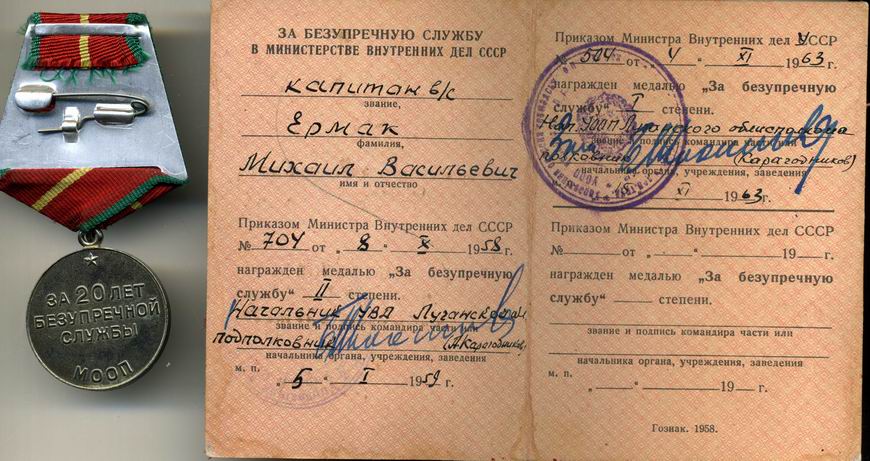 ЗА 20 ЛЕТ
БЕЗУПРЕЧНОЙ
СЛУЖБЫ
МООП
ЗА БЕЗУПРЕЧНУЮ СЛУЖБУ
В МИНИСТЕРСТВЕ ВНУТРЕННИХ ДЕЛ СССР
капитан в/с
звание,
Ермак
фамилия,
Михаил Васильевич
имя и отчество
Приказом Министра Внутренних дел СССР
№ 704 от „ 8 “ XII 1958 г.
награжден медалью „За безупречную
службу“ II степени.
Начальник УВД Луганской
звание и подпись командира части или
подполковник (А. Карагодников)
начальника органа, учреждения, заведения
м. п. „ 5 “ I 1959 г.
Приказом Министра Внутренних дел СССР
№ 504 от „ 4 “ XI 1963 г.
награжден медалью „За безупречную
службу“ I степени.
Нач. УООП Луганского облисполкома
звание и подпись командира части
полковник (Карагодников)
начальника органа, учреждения, заведения
XI 1963 г.
Приказом Министра Внутренних дел СССР
№ — от „ — “ — 19 — г.
награжден медалью „За безупречную
службу“ — степени.
звание и подпись командира части или
начальника органа, учреждения, заведения
м. п. „ — “ — 19 — г.
Гознак. 1958.